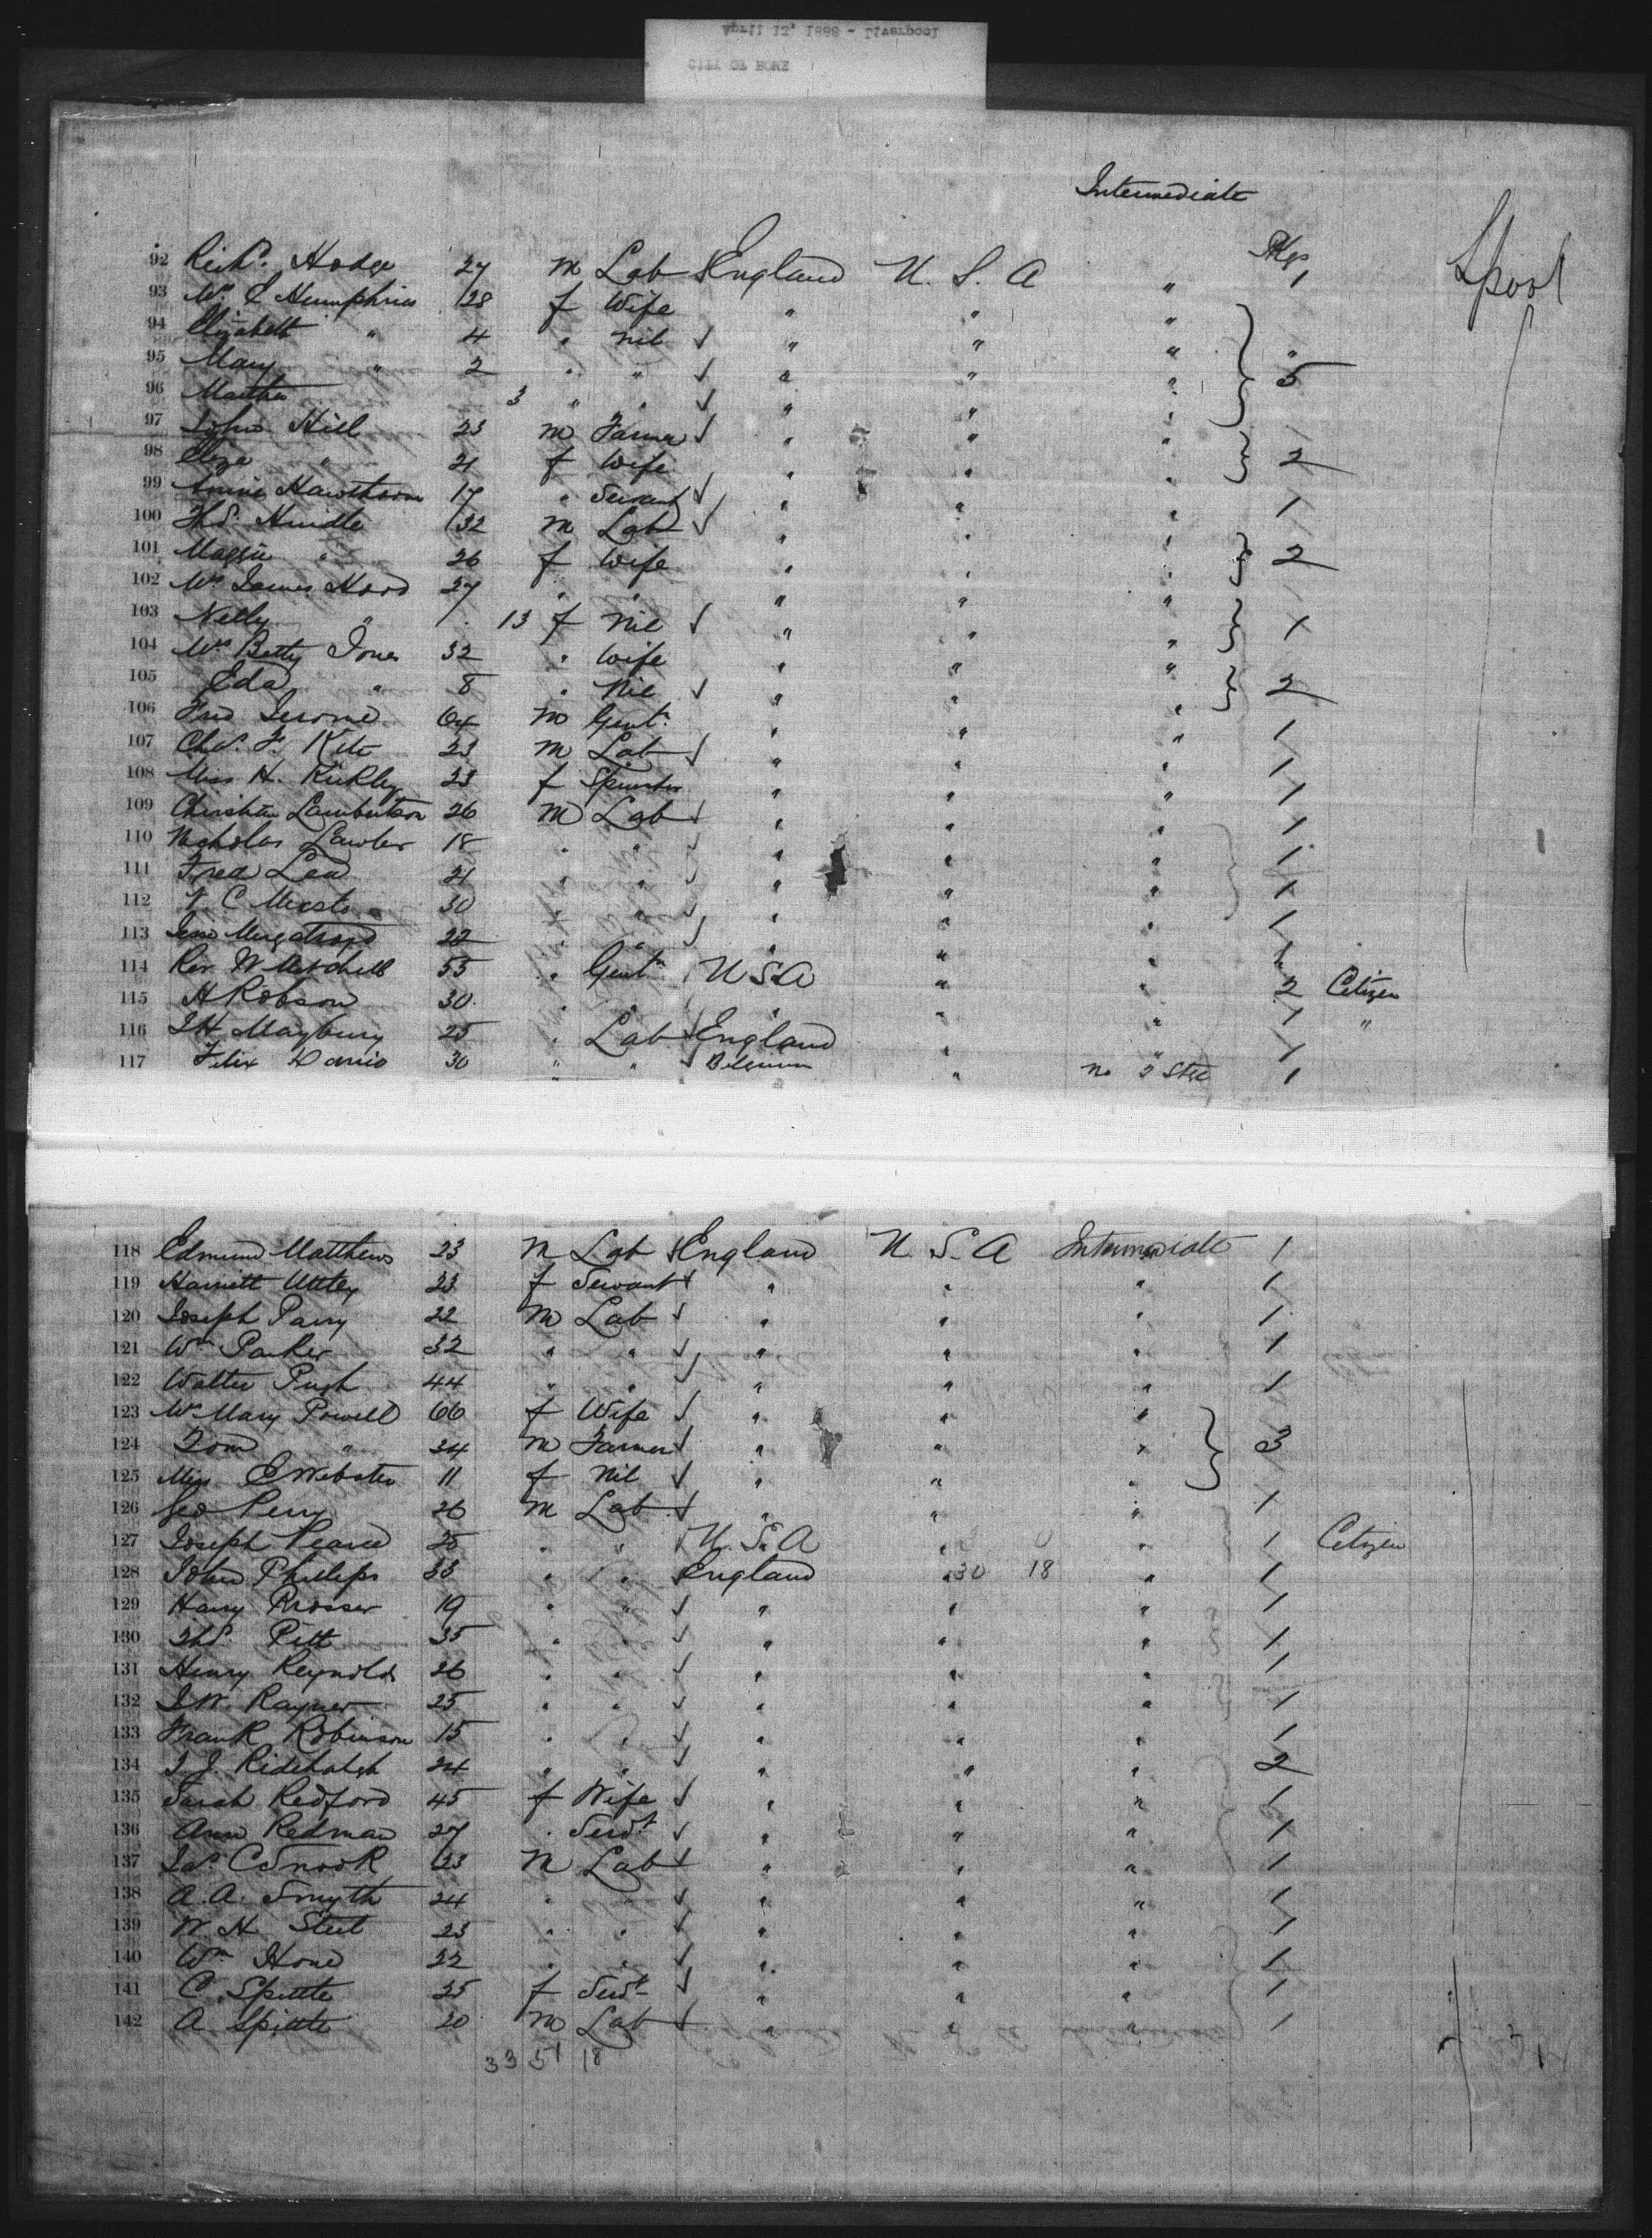 April 12, 1888 - Liverpool
CITY OF ROME
Intermediate
Pkgs
Lpool
92 Rich'd. Hodge 27 m Lab England U. S. A " 1
93 Mrs E Humphries 28 f Wife " " "
94 Elizabeth " 4 " nil " " " "
95 Mary " 2 " " " " " 5
96 Martha 3 " " " " "
97 John Hill 23 m Farmer " " "
98 Eliza " 21 f Wife " " " 2
99 Annie Hawthorn 17 " Servant " " " 1
100 Thos. Hindle 32 m Lab " " "
101 Maggie " 26 f Wife " " " 2
102 Mrs James Hood 27 " " " " "
103 Nelly " 13 f Nil " " " 1
104 Mrs Betty Jones 32 " Wife " " "
105 Eda " 8 " Nil " " " 2
106 Fred Jerome 64 m Gent. " " " 1
107 Chas. F. Kite 23 m Lab " " " 1
108 Miss H. Kirkley 23 f Spinster " " " 1
109 Christian Lambertson 26 m Lab " " " 1
110 Nicholas Lawler 18 " " " " " 1
111 Fred Lea 21 " " " " " 1
112 C 30 " " " " " 1
113 22 " " " " " 1
114 Rev W Mitchell 55 " Gentn U S A " " 2 Citizen
115 H Robson 30 " " " " " 1 "
116 J H Maybury 25 " Lab England " " 1
117 Felix 30 " " Belgium " no Ste 1
118 Edmund Matthews 23 m Lab England U. S. A Intermediate 1
119 Harriett Uttley 23 f Servant " " " 1
120 Joseph Parry 22 m Lab " " " 1
121 Wm Parker 32 " " " " " 1
122 Walter Pugh 44 " " " " " 1
123 Mrs Mary Powell 66 f Wife " " "
124 Tom " 34 m Farmer " " " 3
125 Miss E Webster 11 f Nil " " "
126 Geo Perry 26 m Lab " " " 1
127 Joseph Pearce 25 " " U. S. A " " 1 Citizen
128 John Phillips 33 " " England " 30 18 " 1
129 Harry Prosser 19 " " " " " 1
130 Thos. Pitt 35 " " " " " 1
131 Henry Reynolds 26 " " " " " 1
132 J W. Rayner 25 " " " " " 1
133 Frank Robinson 15 " " " " " 1
134 J. J. Ridehalgh 24 " " " " " 2
135 Sarah Redford 45 f Wife " " " 1
136 Ann Redman 27 " Servt " " " 1
137 Jas. C Snook 23 m Lab " " " 1
138 A. A. Smyth 24 " " " " " 1
139 W. H. Steel 23 " " " " " 1
140 Wm Hone 22 " " " " " 1
141 C. Spittle 25 f Servt " " " 1
142 A Spittle 20 m Lab " " " 1
33 51 18